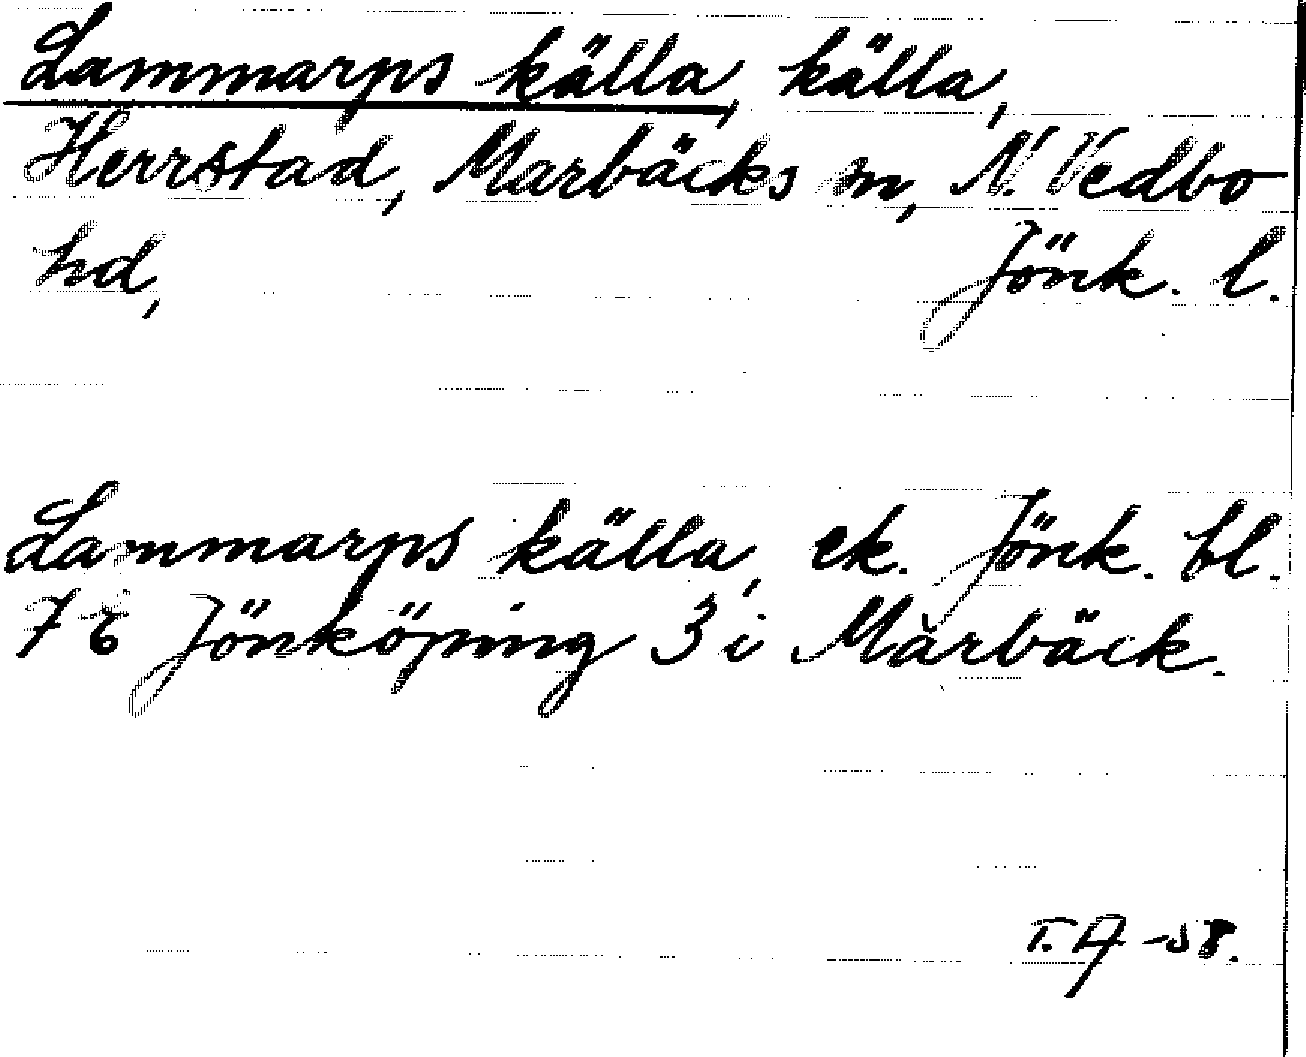 Lammarps källa, källa,
Herrstad, Marbäcks sn, N. Vedbo
hd, Jönk. l.
Lammarps källa, ek. Jönk. bl.
7 E Jönköping 3 i Marbäck.
T. A -58.